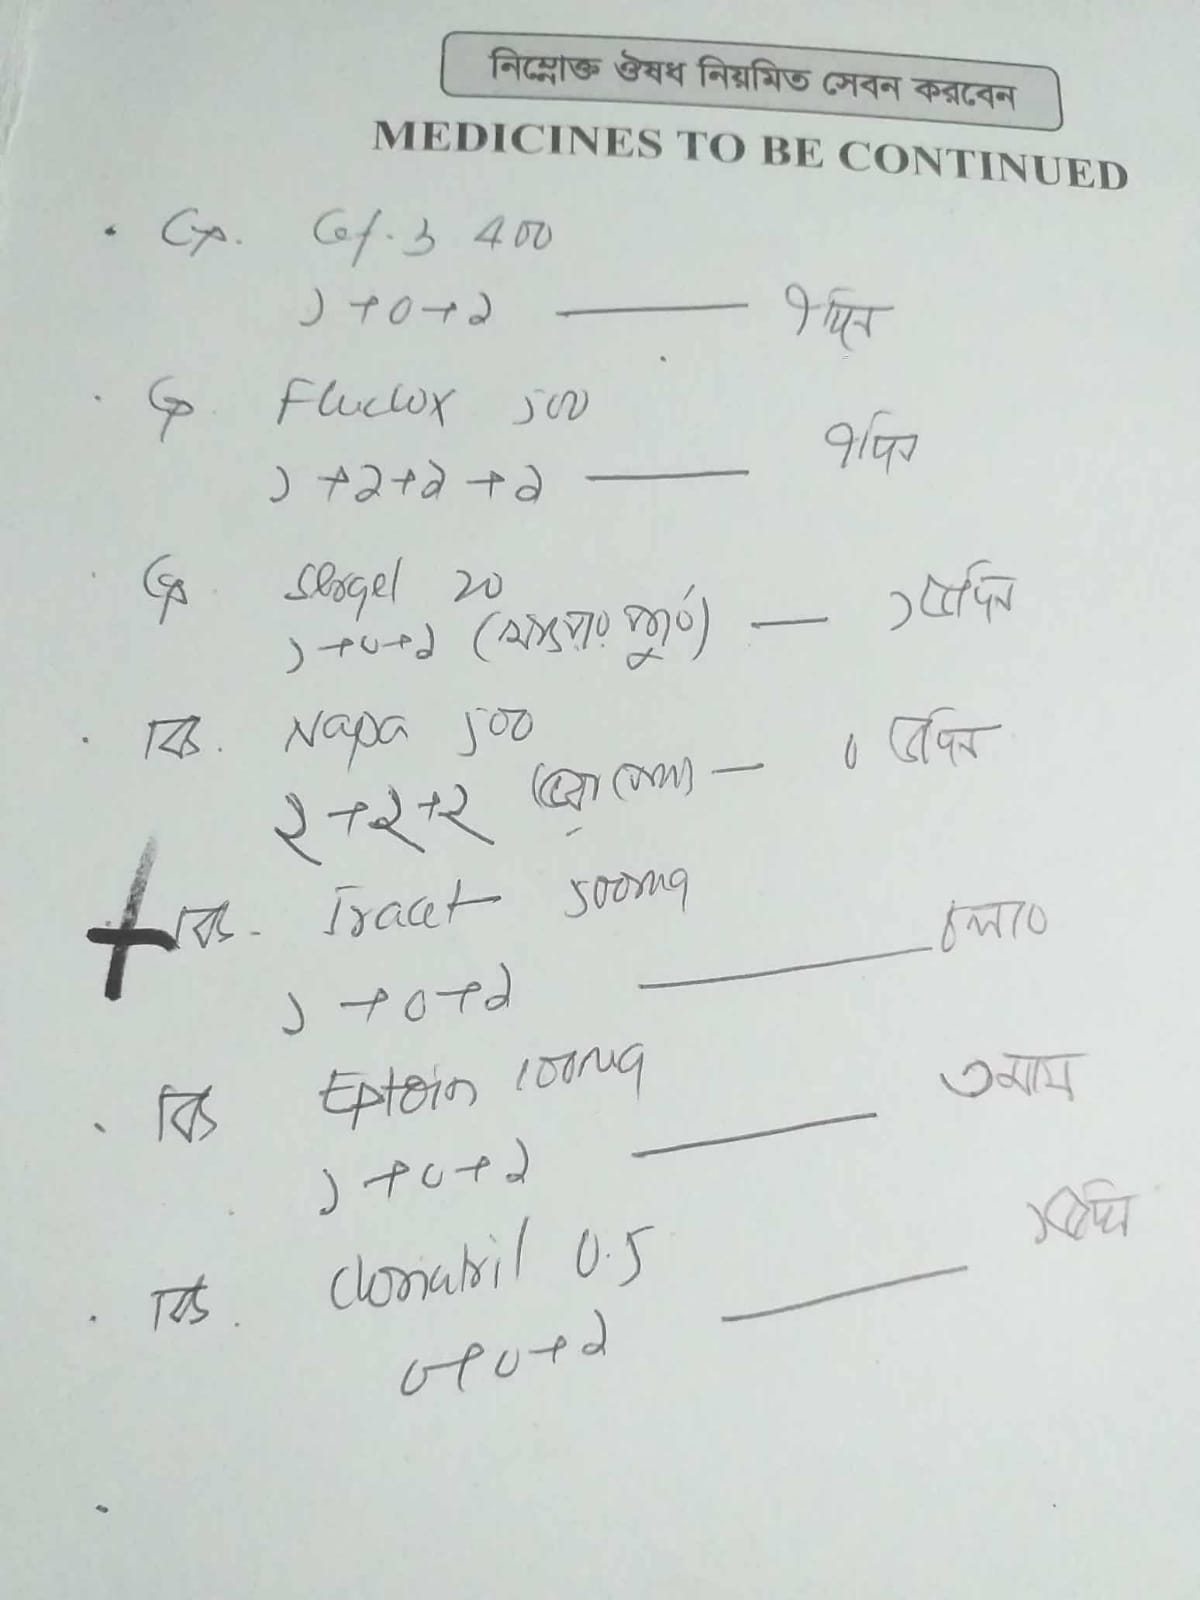 নিম্নোক্ত ঔষধ নিয়মিত সেবন করবেন
MEDICINES TO BE CONTINUED
Cap. Cef-3 400
১+০+১ — ৭দিন
Cap Fluclox 500
১+১+১+১ — ৭দিন
Cap Sergel 20
১+০+১ (খাওয়ার পূর্বে) — দিন
বড়ি. Napa 500
২+২+২ — দিন
বড়ি. Iracet 500mg
১+০+১ — চলবে
বড়ি Eptoin 100mg
১+০+১ — ৩মাস
বড়ি. Clonatril 0.5
০+০+১ —